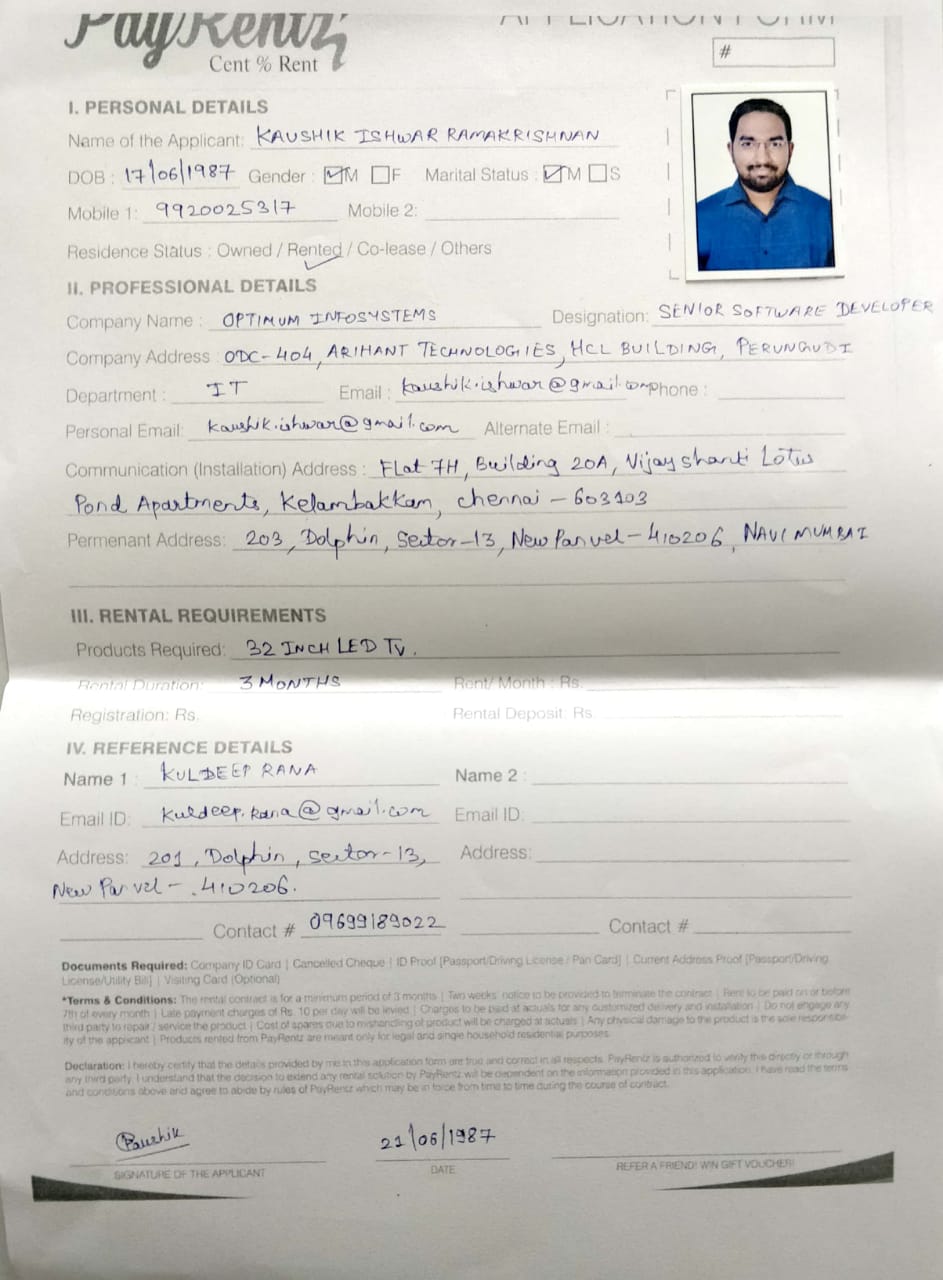 PayRentz
APPLICATION FORM
Cent % Rent
#
I. PERSONAL DETAILS
Name of the Applicant: KAUSHIK ISHWAR RAMAKRISHNAN
DOB : 17/06/1987 Gender : M F Marital Status : M S
Mobile 1: 9920025317 Mobile 2:
Residence Status : Owned / Rented / Co-lease / Others
II. PROFESSIONAL DETAILS
Company Name : OPTIMUM INFOSYSTEMS Designation: SENIOR SOFTWARE DEVELOPER
Company Address : ODC-404, ARIHANT TECHNOLOGIES, HCL BUILDING, PERUNGUDI
Department : IT Email : kaushik.ishwar@gmail.com phone :
Personal Email: kaushik.ishwar@gmail.com Alternate Email :
Communication (Installation) Address : FLat 7H, Building 20A, Vijay shanti Lotus
Pond Apartments, Kelambakkam, chennai – 603103
Permenant Address: 203, Dolphin, Sector-13, New Panvel – 410206, NAVI MUMBAI
III. RENTAL REQUIREMENTS
Products Required: 32 INCH LED TV.
Rental Duration: 3 MONTHS Rent/ Month : Rs.
Registration: Rs. Rental Deposit: Rs.
IV. REFERENCE DETAILS
Name 1 : KULDEEP RANA Name 2 :
Email ID: Kuldeep.rana@gmail.com Email ID:
Address: 201, Dolphin, sector-13, Address:
New Panvel – 410206.
Contact # 09699189022 Contact #
Documents Required: Company ID Card | Cancelled Cheque | ID Proof [Passport/Driving License / Pan Card] | Current Address Proof [Passport/Driving
License/Utility Bill] | Visiting Card (Optional)
*Terms & Conditions: The rental contract is for a minimum period of 3 months | Two weeks notice to be provided to terminate the contract | Rent to be paid on or before
7th of every month | Late payment charges of Rs. 10 per day will be levied | Charges to be paid at actuals for any customized delivery and installation | Do not engage any
third party to repair / service the product | Cost of spares due to mishandling of product will be charged at actuals | Any physical damage to the product is the sole responsibil-
ity of the applicant | Products rented from PayRentz are meant only for legal and single household residential purposes.
Declaration: I hereby certify that the details provided by me in this application form are true and correct in all respects. PayRentz is authorized to verify this directly or through
any third party. I understand that the decision to extend any rental solution by PayRentz will be dependent on the information provided in this application. I have read the terms
and conditions above and agree to abide by rules of PayRentz which may be in force from time to time during the course of contract.
Kaushik 21/06/1987
SIGNATURE OF THE APPLICANT DATE REFER A FRIEND! WIN GIFT VOUCHER!